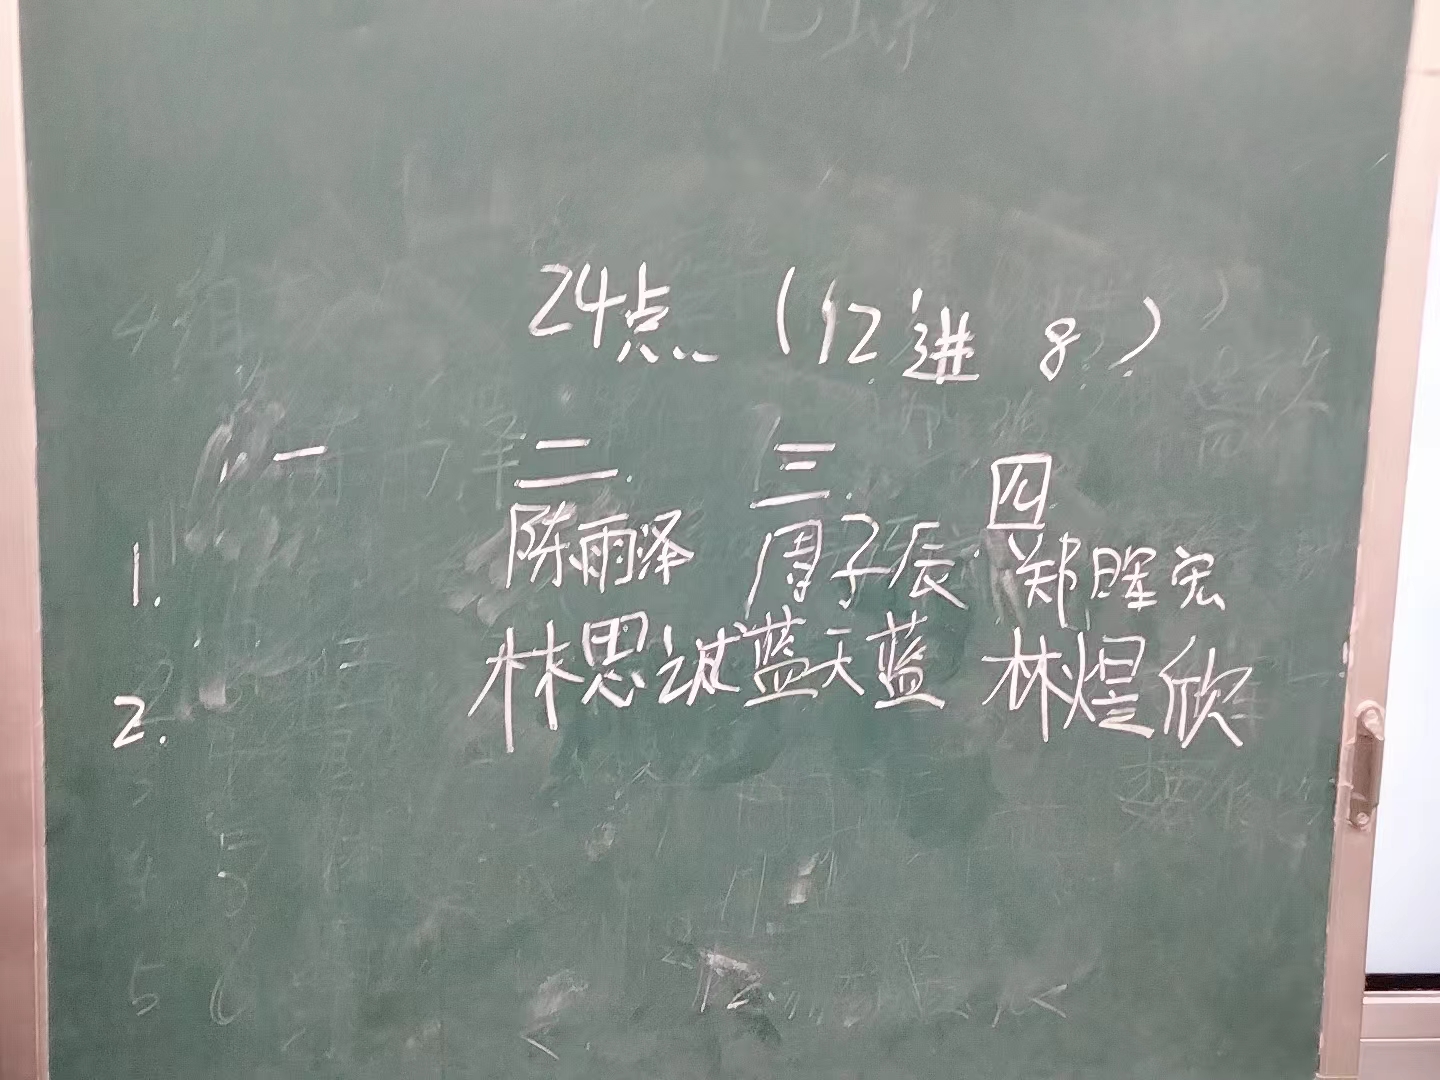 24点(12进8)
一 二 三 四
1. 陈雨泽 周子辰 郑晖宏
2. 林思诚 蓝天蓝 林煜欣